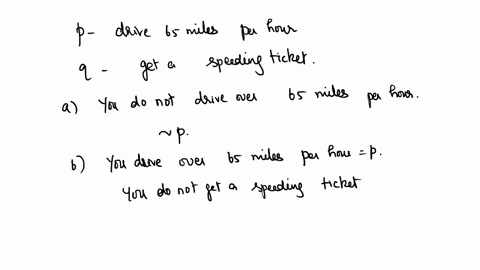 p- drive 65 miles per hour
q - get a speeding ticket.
a) You do not drive over 65 miles per hour.
~p.
b) You drive over 65 miles per hour = p.
You do not get a speeding ticket